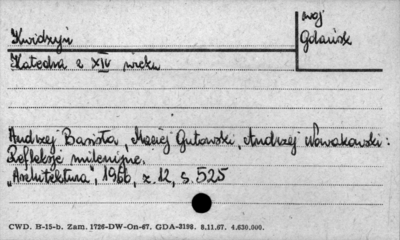 woj
Gdańsk
Kwidzyń
Katedra z XIV wieku
Andrzej Basista, Maciej Gutowski, Andrzej Nowakowski:
Refleksje milenijne.
"Architektura", 1966, z. 12, s. 525
CWD. B-15-b. Zam. 1726-DW-On-67. GDA-3198. 8.11.67. 4.630.000.